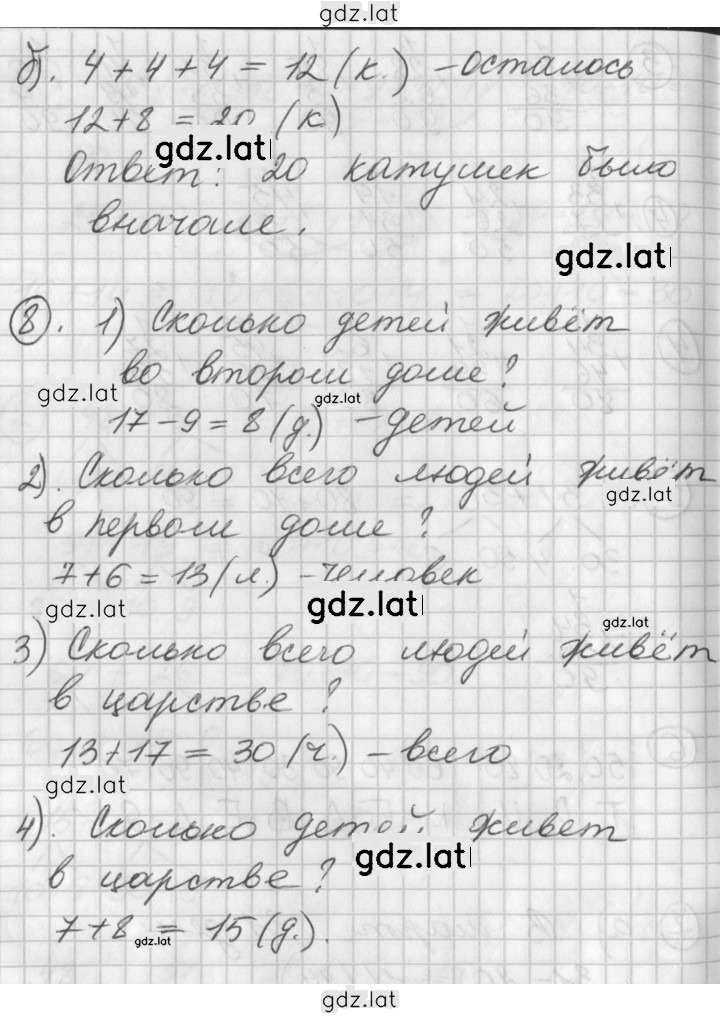 gdz.lat
б). 4 + 4 + 4 = 12 (к.) – осталось
12 + 8 = 20 (к)
gdz.lat
Ответ: 20 катушек было
вначале.
gdz.lat
8. 1) Сколько детей живёт
во втором доме?
gdz.lat
gdz.lat
17 – 9 = 8 (д.) – детей
2). Сколько всего людей живёт
gdz.lat
в первом доме?
7 + 6 = 13 (л.) – человек
gdz.lat
gdz.lat
gdz.lat
3) Сколько всего людей живёт
в царстве?
13 + 17 = 30 (ч.) – всего
gdz.lat
4). Сколько детей живет
gdz.lat
в царстве?
7 + 8 = 15 (д.).
gdz.lat
gdz.lat